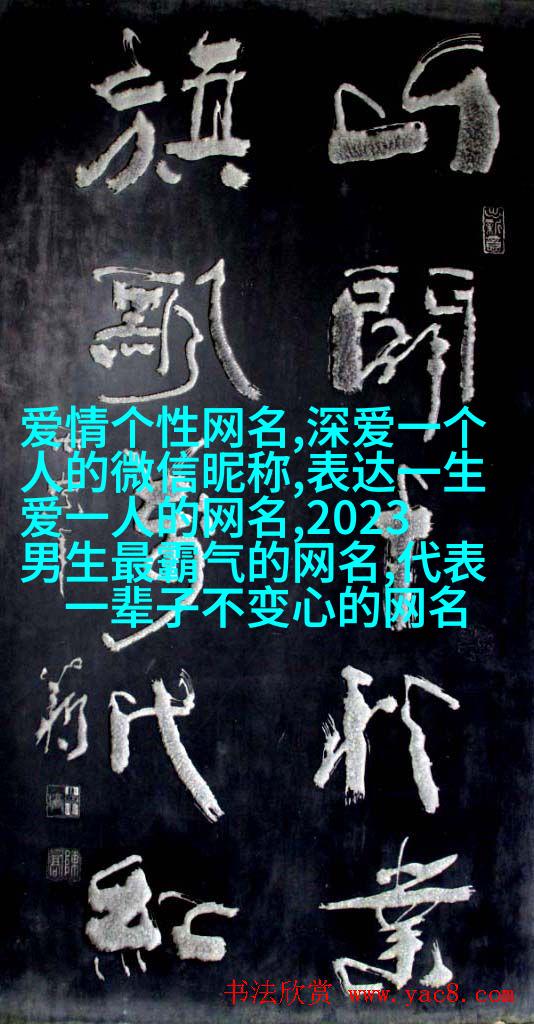 山開千秋業
旗代紅
爱情个性网名,深爱一个
人的微信昵称,表达一生
爱一人的网名,2023
男生最霸气的网名,代表
一辈子不变心的网名
书法欣赏 www.yac8.com